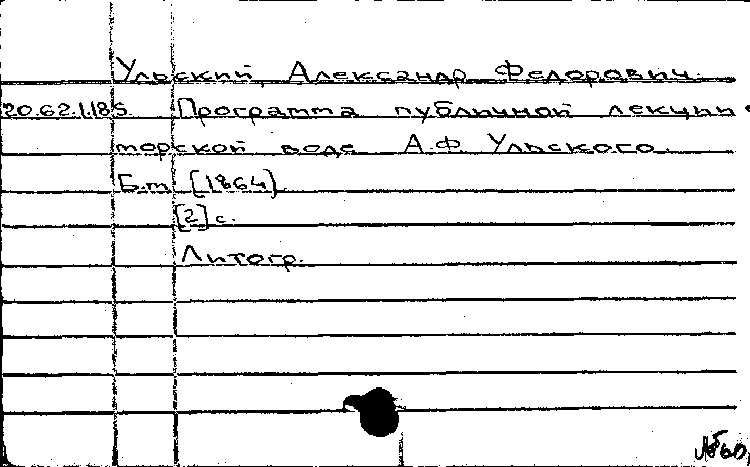 Ульский, Александр Федорович.
20.62.1.185. Программа публичной лекции о
морской воде А.Ф. Ульского.
Б.м. [1864].
[2] с.
Литогр.